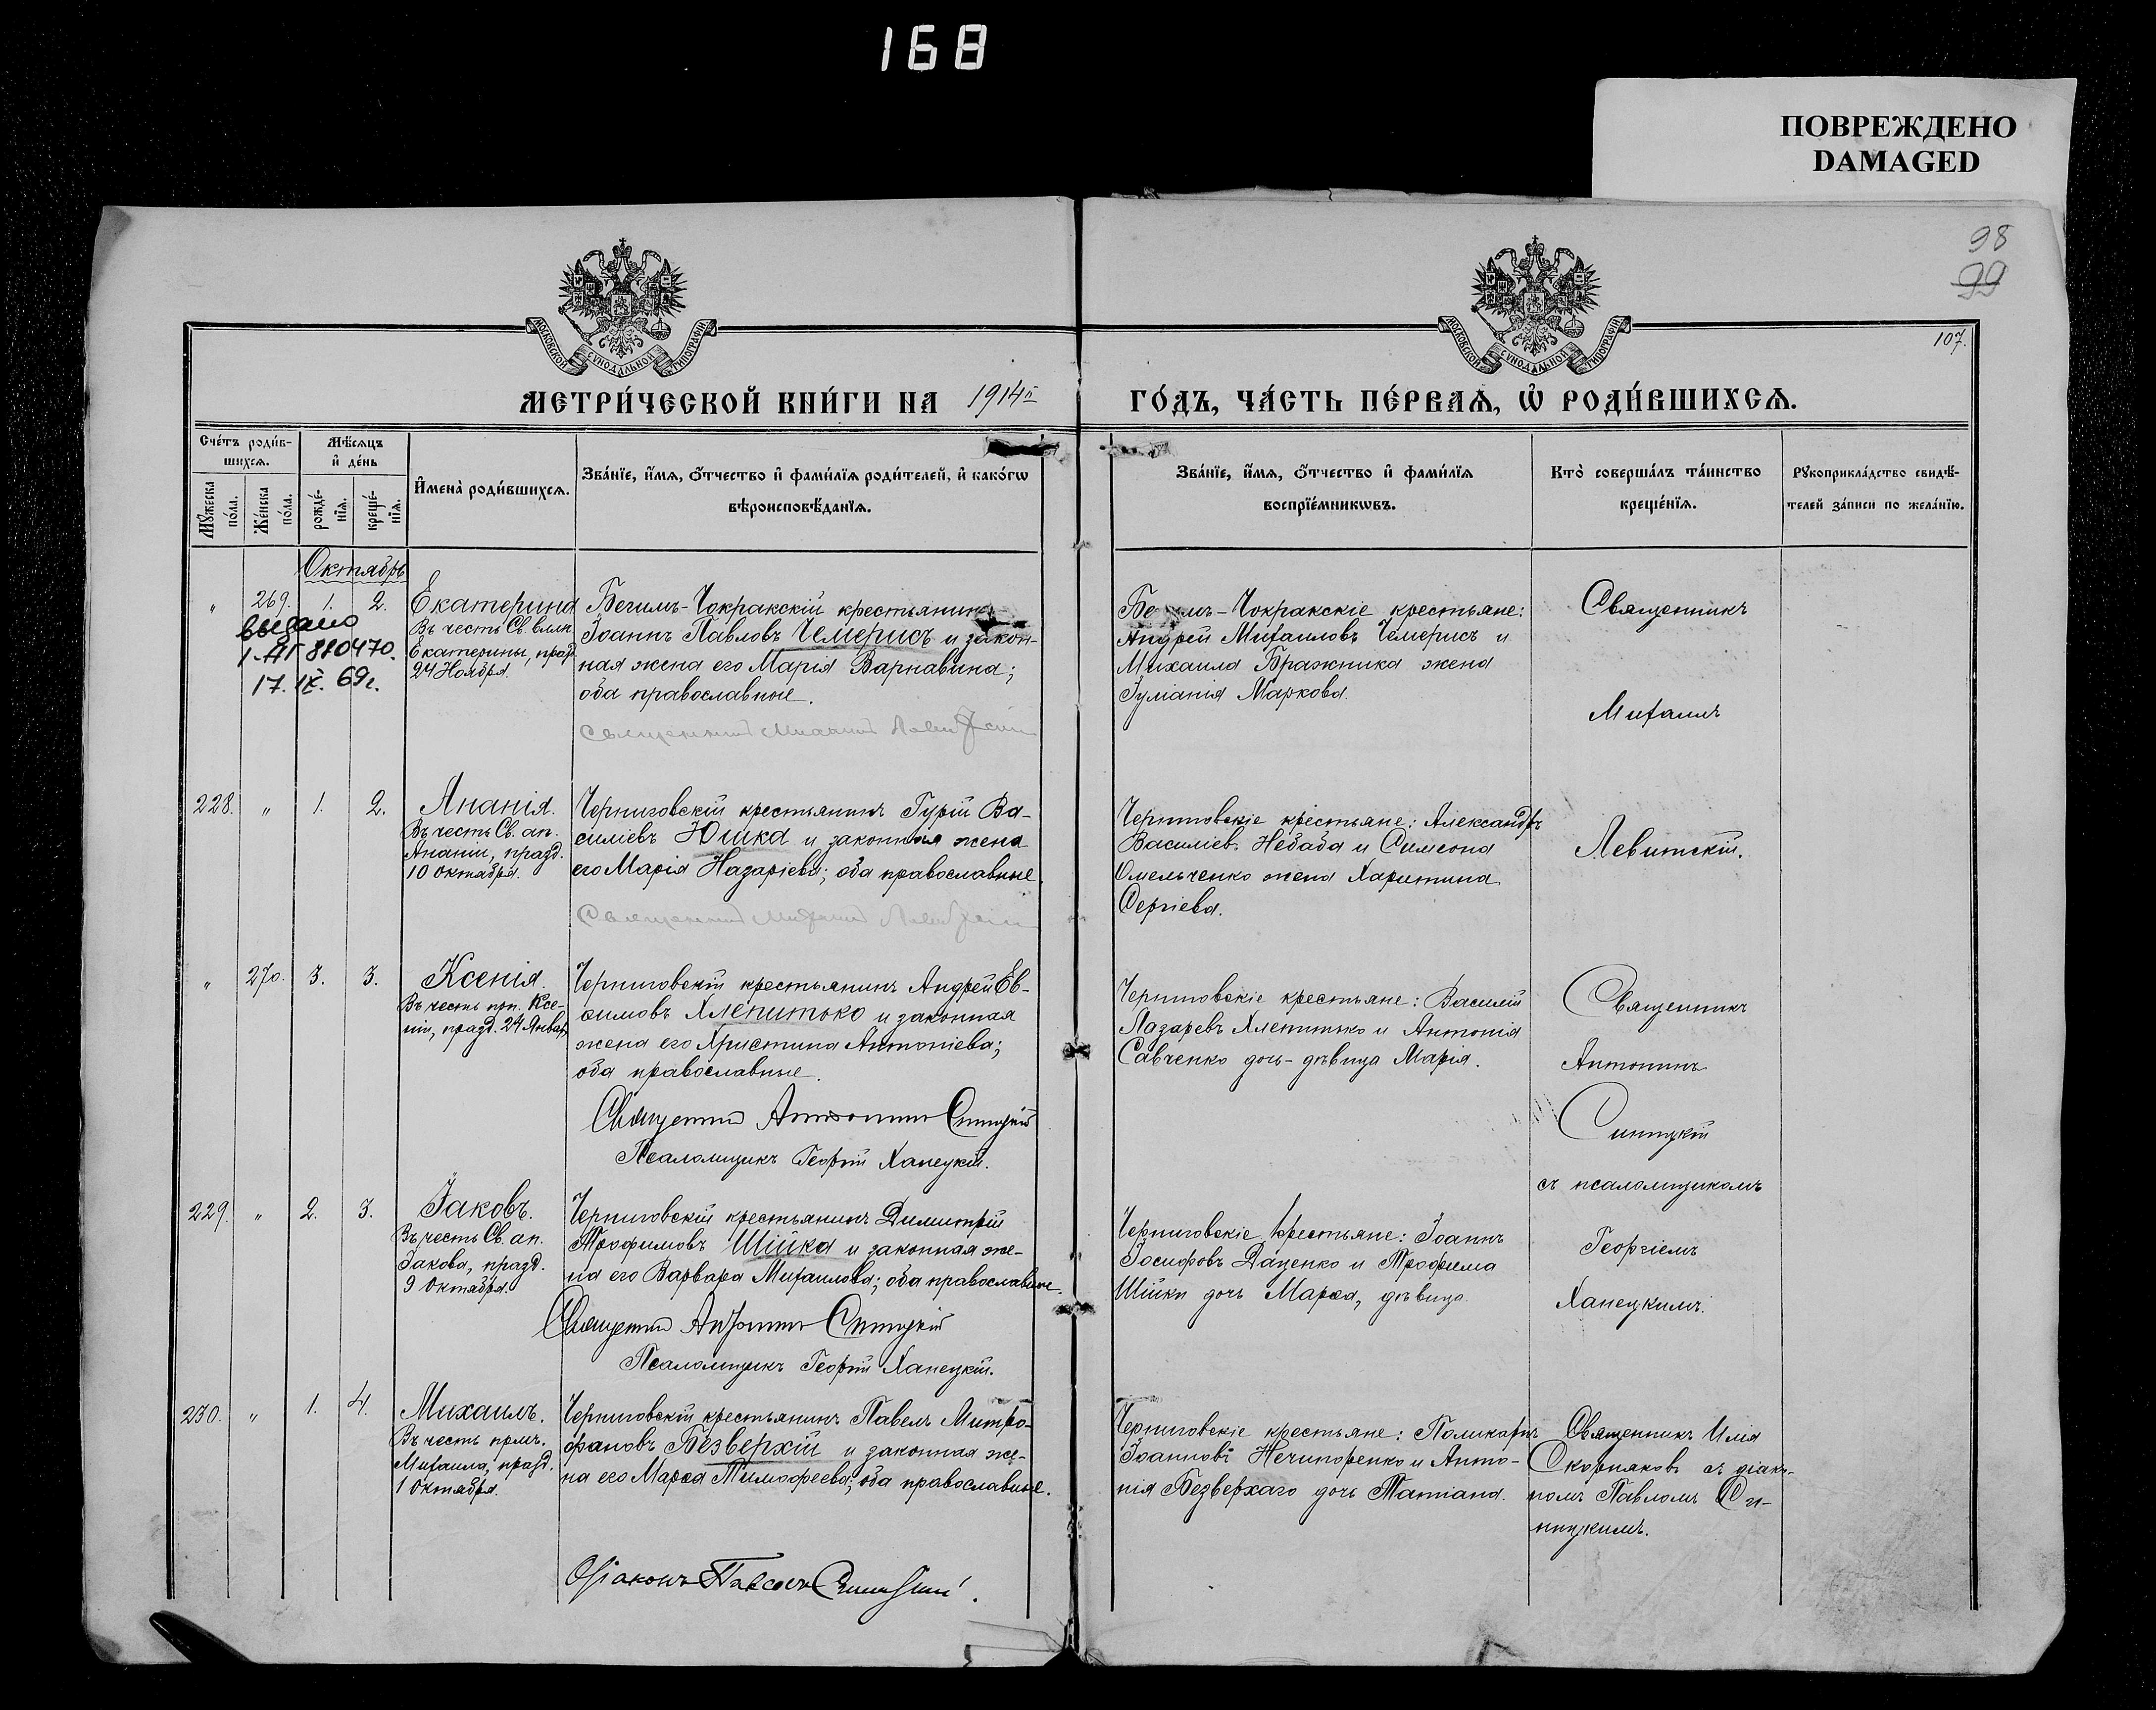 168
ПОВРЕЖДЕНО
DAMAGED
98
99
107.
МОСКОВСКОЙ СѴНОДАЛЬНОЙ ТИПОГРАФІИ
МОСКОВСКОЙ СѴНОДАЛЬНОЙ ТИПОГРАФІИ
МЕТРИ́ЧЕСКОЙ КНИ́ГИ НА 1914й
ГО́ДЪ, ЧА́СТЬ ПЕ́РВАѦ, Ѡ҆ РОДИ́ВШИХСѦ.
Сче́тъ роди́в-
шихсѧ.
Мѣ́сѧцъ
и҆ де́нь
Мꙋ́жеска по́ла.
Же́нска по́ла.
рожде́-
нїѧ.
креще́-
нїѧ.
И҆мена̀ роди́вшихсѧ.
Зва́нїе, и҆́мѧ, ѻ҆́тчество и҆ фами́лїѧ роди́телей, и҆ како́гѡ
вѣроисповѣ́данїѧ.
Зва́нїе, и҆́мѧ, ѻ҆́тчество и҆ фами́лїѧ
воспрїе́мникѡвъ.
Кто̀ соверша́лъ та́инство
креще́нїѧ.
Рꙋкоприкла́дство свидѣ́-
телей за́писи по жела́нїю.
Октябрь
" 269. 1. 2.
выдано
1-АГ 880470.
17. IX. 69г.
Екатерина
Въ честь Св. влмч.
Екатерины, празд.
24 Ноября.
Бегимъ-Чокракскій крестьянинъ
Іоаннъ Павловъ Чемерисъ и закон-
ная жена его Марія Варнавина;
оба православные.
Священникъ Михаилъ Левитскій
Бегимъ-Чокракскіе крестьяне:
Андрей Михаиловъ Чемерисъ и
Михаила Бражника жена
Іуліанія Маркова.
Священникъ
Михаилъ
Левитскій.
228. " 1. 2.
Ананія.
Въ честь Св. ап.
Ананіи, празд.
10 Октября.
Черниговскій крестьянинъ Гурій Ва-
силіевъ Юшка и законная жена
его Марія Назаріева; оба православные.
Священникъ Михаилъ Левитскій
Черниговскіе крестьяне: Александръ
Василіевъ Небаба и Симеона
Омельченко жена Харитина
Сергіева.
" 270. 3. 3.
Ксенія.
Въ честь прп. Ксе-
ніи, празд. 24 Январ.
Черниговскій крестьянинъ Андрей Ев-
фимовъ Хлепитько и законная
жена его Христина Антоніева;
оба православные.
Священникъ Антонинъ Синицкій
Псаломщикъ Георгій Ханецкій.
Черниговскіе крестьяне: Василій
Лазаревъ Хлепитько и Антонія
Савченко дочь-дѣвица Марія.
Священникъ
Антонинъ
Синицкій
съ псаломщикомъ
Георгіемъ
Ханецкимъ.
229. " 2. 3.
Іаковъ.
Въ честь Св. ап.
Іакова, празд.
9 Октября.
Черниговскій крестьянинъ Димитрій
Трофимовъ Шійка и законная же-
на его Варвара Михаилова; оба православные.
Священникъ Антонинъ Синицкій
Псаломщикъ Георгій Ханецкій.
Черниговскіе крестьяне: Іоаннъ
Іосифовъ Даценко и Трофима
Шійки дочь Марѳа, дѣвица.
230. " 1. 4.
Михаилъ.
Въ честь прмч.
Михаила, празд.
1 Октября.
Черниговскій крестьянинъ Павелъ Митро-
фановъ Безверхій и законная же-
на его Марѳа Тимофеева; оба православные.
Діаконъ Павелъ Синицкій.
Черниговскіе крестьяне: Поликарпъ
Іоанновъ Нечипоренко и Анто-
нія Безверхаго дочь Татіана.
Священникъ Илія
Скорняковъ съ діако-
номъ Павломъ Си-
ницкимъ.